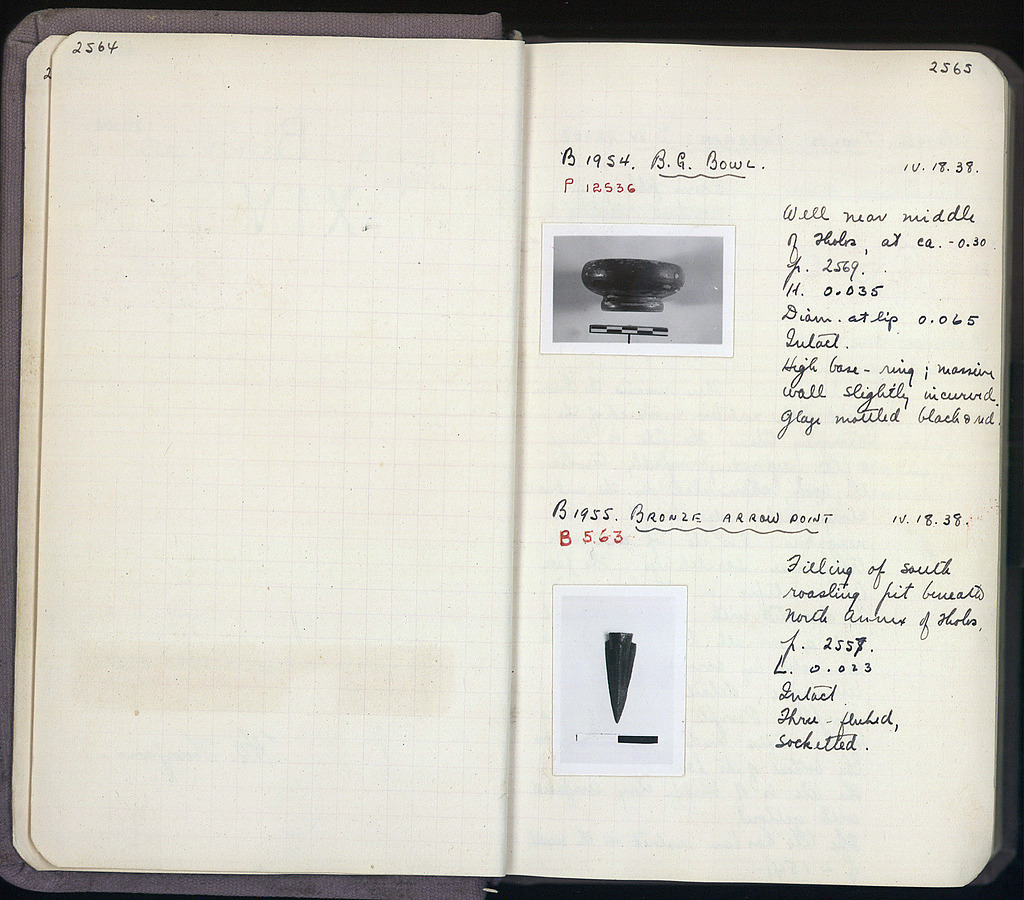 2564
2565
B 1954. B.G. BOWL. IV.18.38.
P 12536
Well near middle
of Tholos, at ca. -0.30
p. 2569.
H. 0.035
Diam. at lip 0.065
Intact.
High base-ring; massive
wall slightly incurved.
Glaze mottled black & red.
B 1955. BRONZE ARROW POINT IV.18.38.
B 563
Filling of south
roasting pit beneath
North Annex of Tholos.
p. 2557.
L. 0.023
Intact
Three-fluked,
socketted.